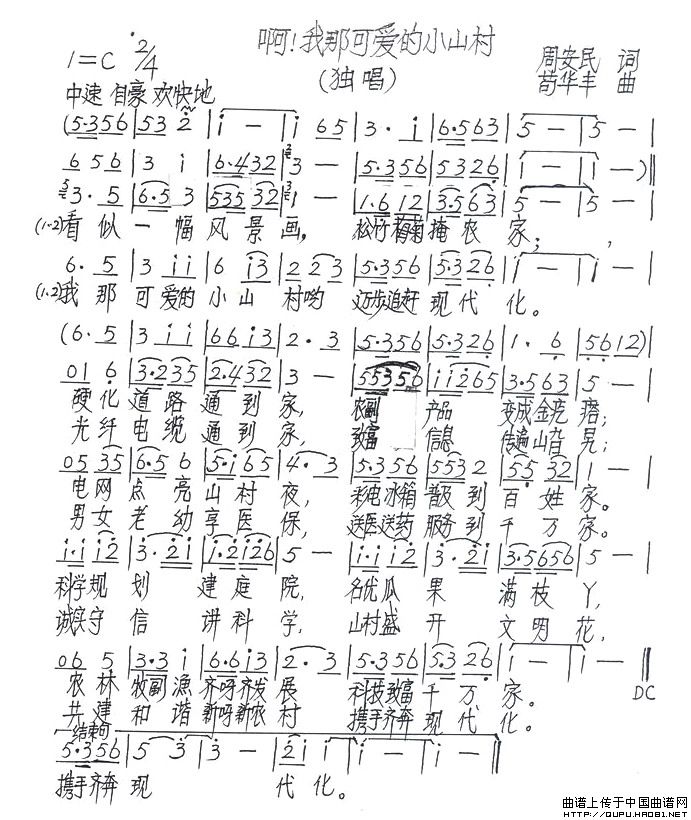 啊!我那可爱的小山村
1=C 2/4
(独唱)
周安民 词
苟华丰 曲
中速 自豪 欢快地
(5·356 | 53 2 | i — | i 65 | 3· i | 6·563 | 5 — | 5 — |
656 | 3 i | 6·432 | 3 — | 5·356 | 5326 | i — | i —)‖
3· 5 | 6·5 3 | 535 32 | 1 — | 1·6 12 | 3·563 | 5 — | 5 — |
(1·2)看似一幅风景画, 松竹葡萄掩农家;,
6· 5 | 3 ii | 6 i3 | 2 23 | 5·356 | 5·326 | i — | i — |
(1·2)我那可爱的小山村哟 迈步追赶现代化。
(6· 5 | 3 ii | 66i3 | 2· 3 | 5·356 | 5·326 | 1· 6 | 5612)|
01 6 | 3·235 | 2·432 | 3 — | 55356 | ii265 | 3·563 | 5 — |
硬化道路通到家, 农副产品变成金疙瘩;
光纤电缆通到家, 致富信息传遍山旮旯;
05 35 | 6·5 6 | 5·i65 | 4· 3 | 5·356 | 5532 | 55 32 | 1 — |
电网点亮山村夜, 彩电冰箱普及到百姓家。
男女老幼享医保, 送医送药服务到千万家。
i·ii2 | 3·2i | i·2i26 | 5 — | i·ii2 | 3·2i | 3·5656 | 5 — |
科学规划建庭院, 名优瓜果满枝丫,
诚实守信讲科学, 山村盛开文明花,
06 5 | 3·3 i | 6·6i3 | 2· 3 | 5·356 | 5·326 | i — | i — ‖
农林牧副渔齐呼齐发展 科技致富千万家。
DC
共建和谐新呼新农村 携手齐奔现代化。
结束句
5·356 | 5 3 | 3 — | 2i i | i — | i — ‖
携手齐奔现代化。
曲谱上传于中国曲谱网
HTTP://QUPU.HAO81.NET